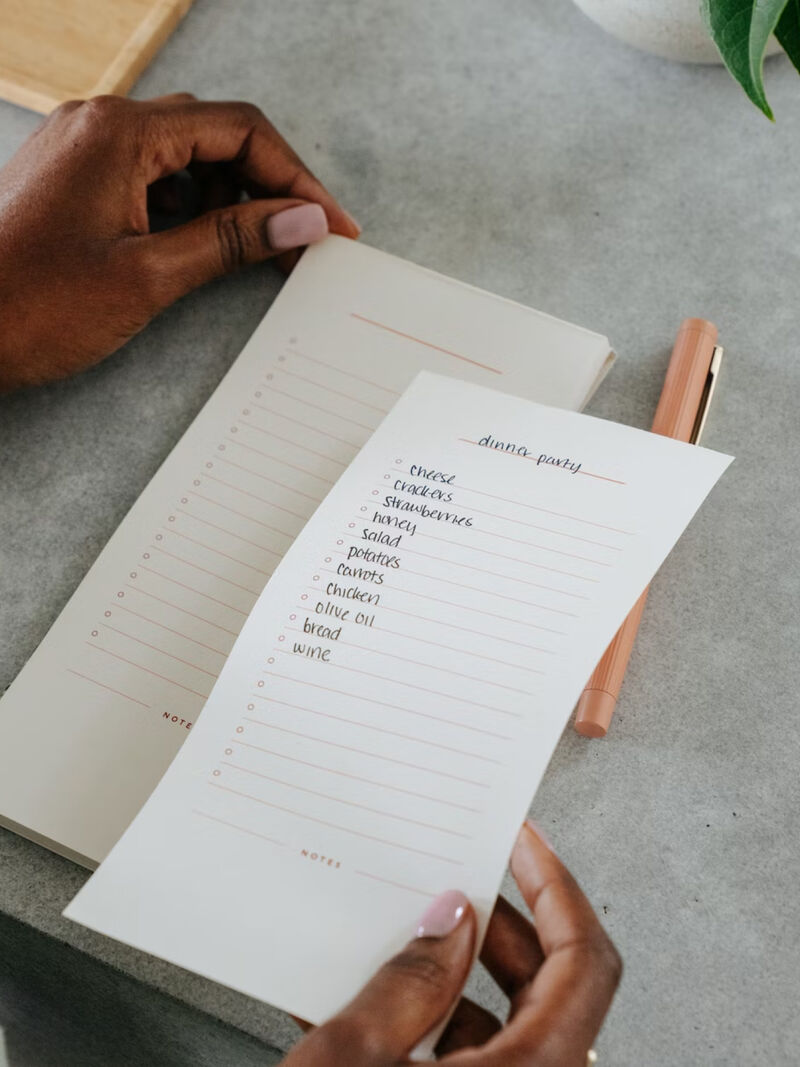 dinner party
cheese
crackers
strawberries
honey
salad
potatoes
carrots
chicken
olive oil
bread
wine
NOTES
NOTE